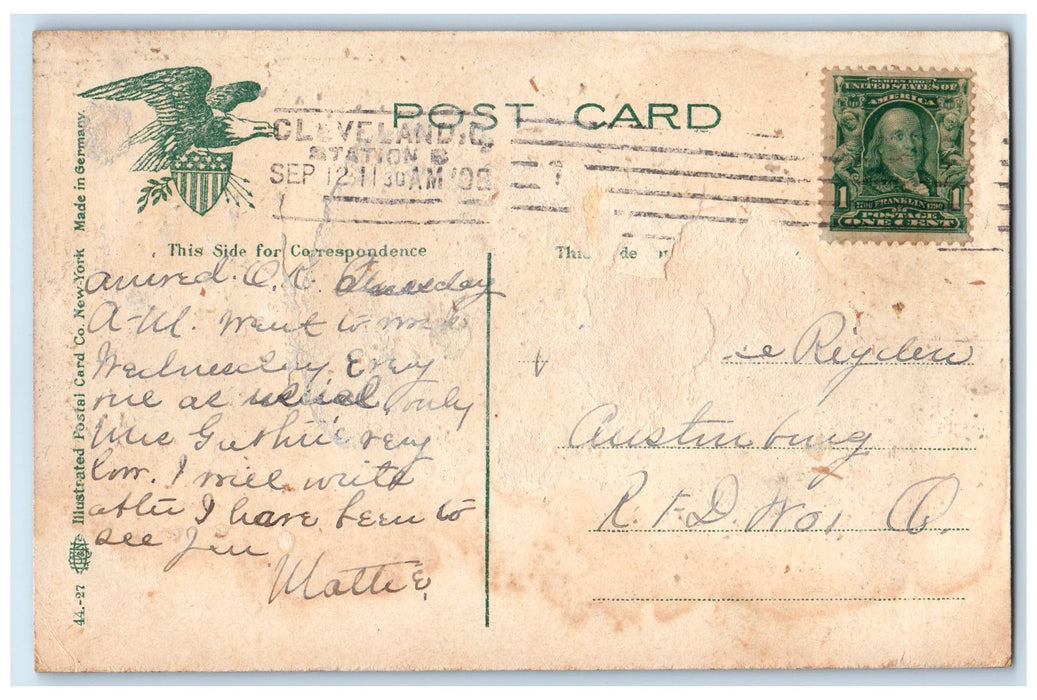 POST CARD
CLEVELAND, O.
STATION B
SEP 12 1130AM '08
1
SERIES 1902
UNITED STATES OF
AMERICA
1 1
FRANKLIN
POSTAGE
ONE CENT
This Side for Correspondence
arrived O.K. Tuesday
A-M. Went to work
Wednesday Every
one as usual only
Mrs Guthrie very
low. I will write
after I have been to
see Jen
Mattie
This de
Rigden
Austinburg
R.F.D. No1 O.
44.-27 Illustrated Postal Card Co. New-York Made in Germany.